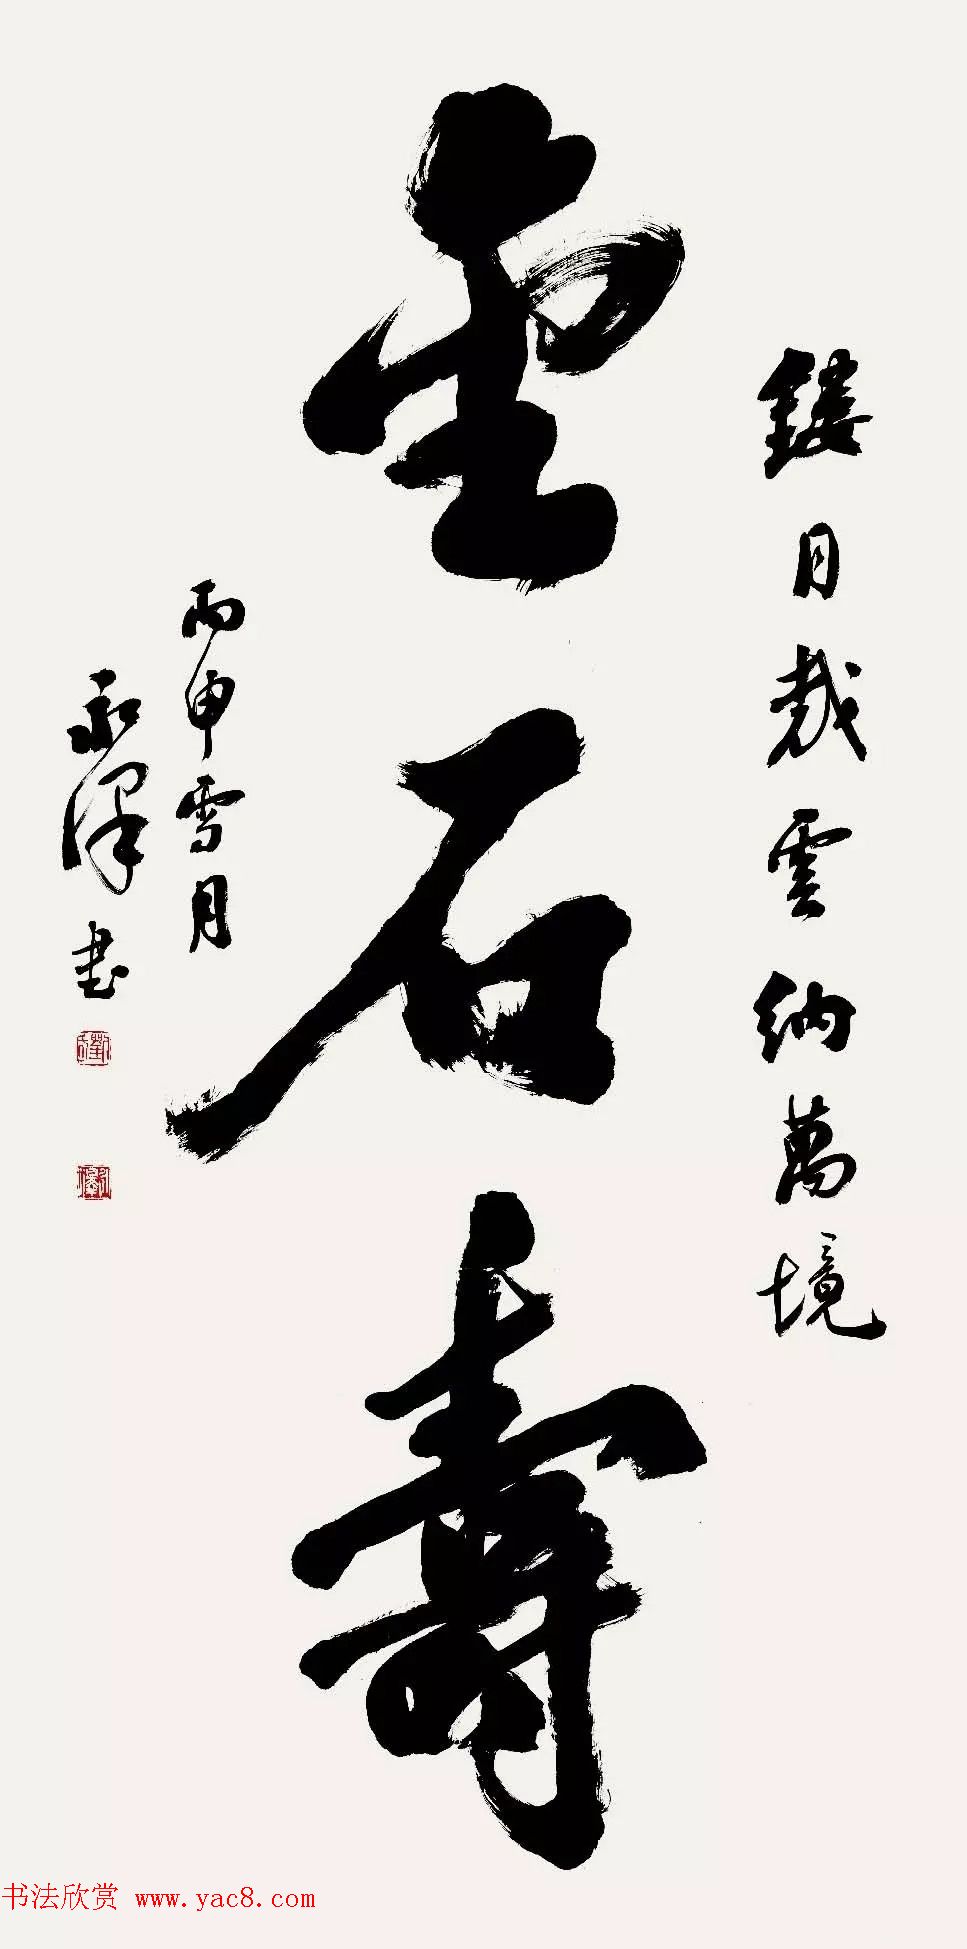 鏤月裁雲納萬境
金石壽
丙申雪月
永澤書
书法欣赏 www.yac8.com